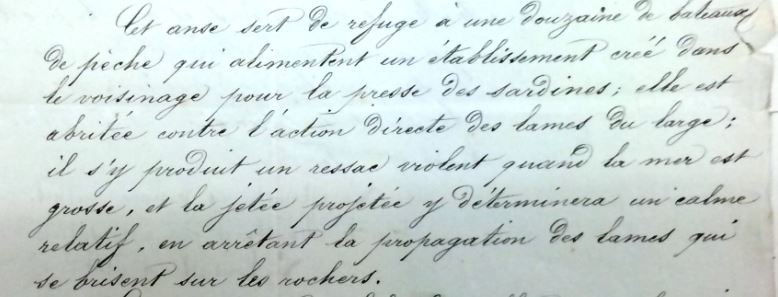 Cet anse sert de refuge à une douzaine de bateaux
de pêche qui alimentent un établissement créé dans
le voisinage pour la presse des sardines; elle est
abritée contre l'action directe des lames du large;
il s'y produit un ressac violent quand la mer est
grosse, et la jetée projetée y déterminera un calme
relatif, en arrêtant la propagation des lames qui
se brisent sur les rochers.